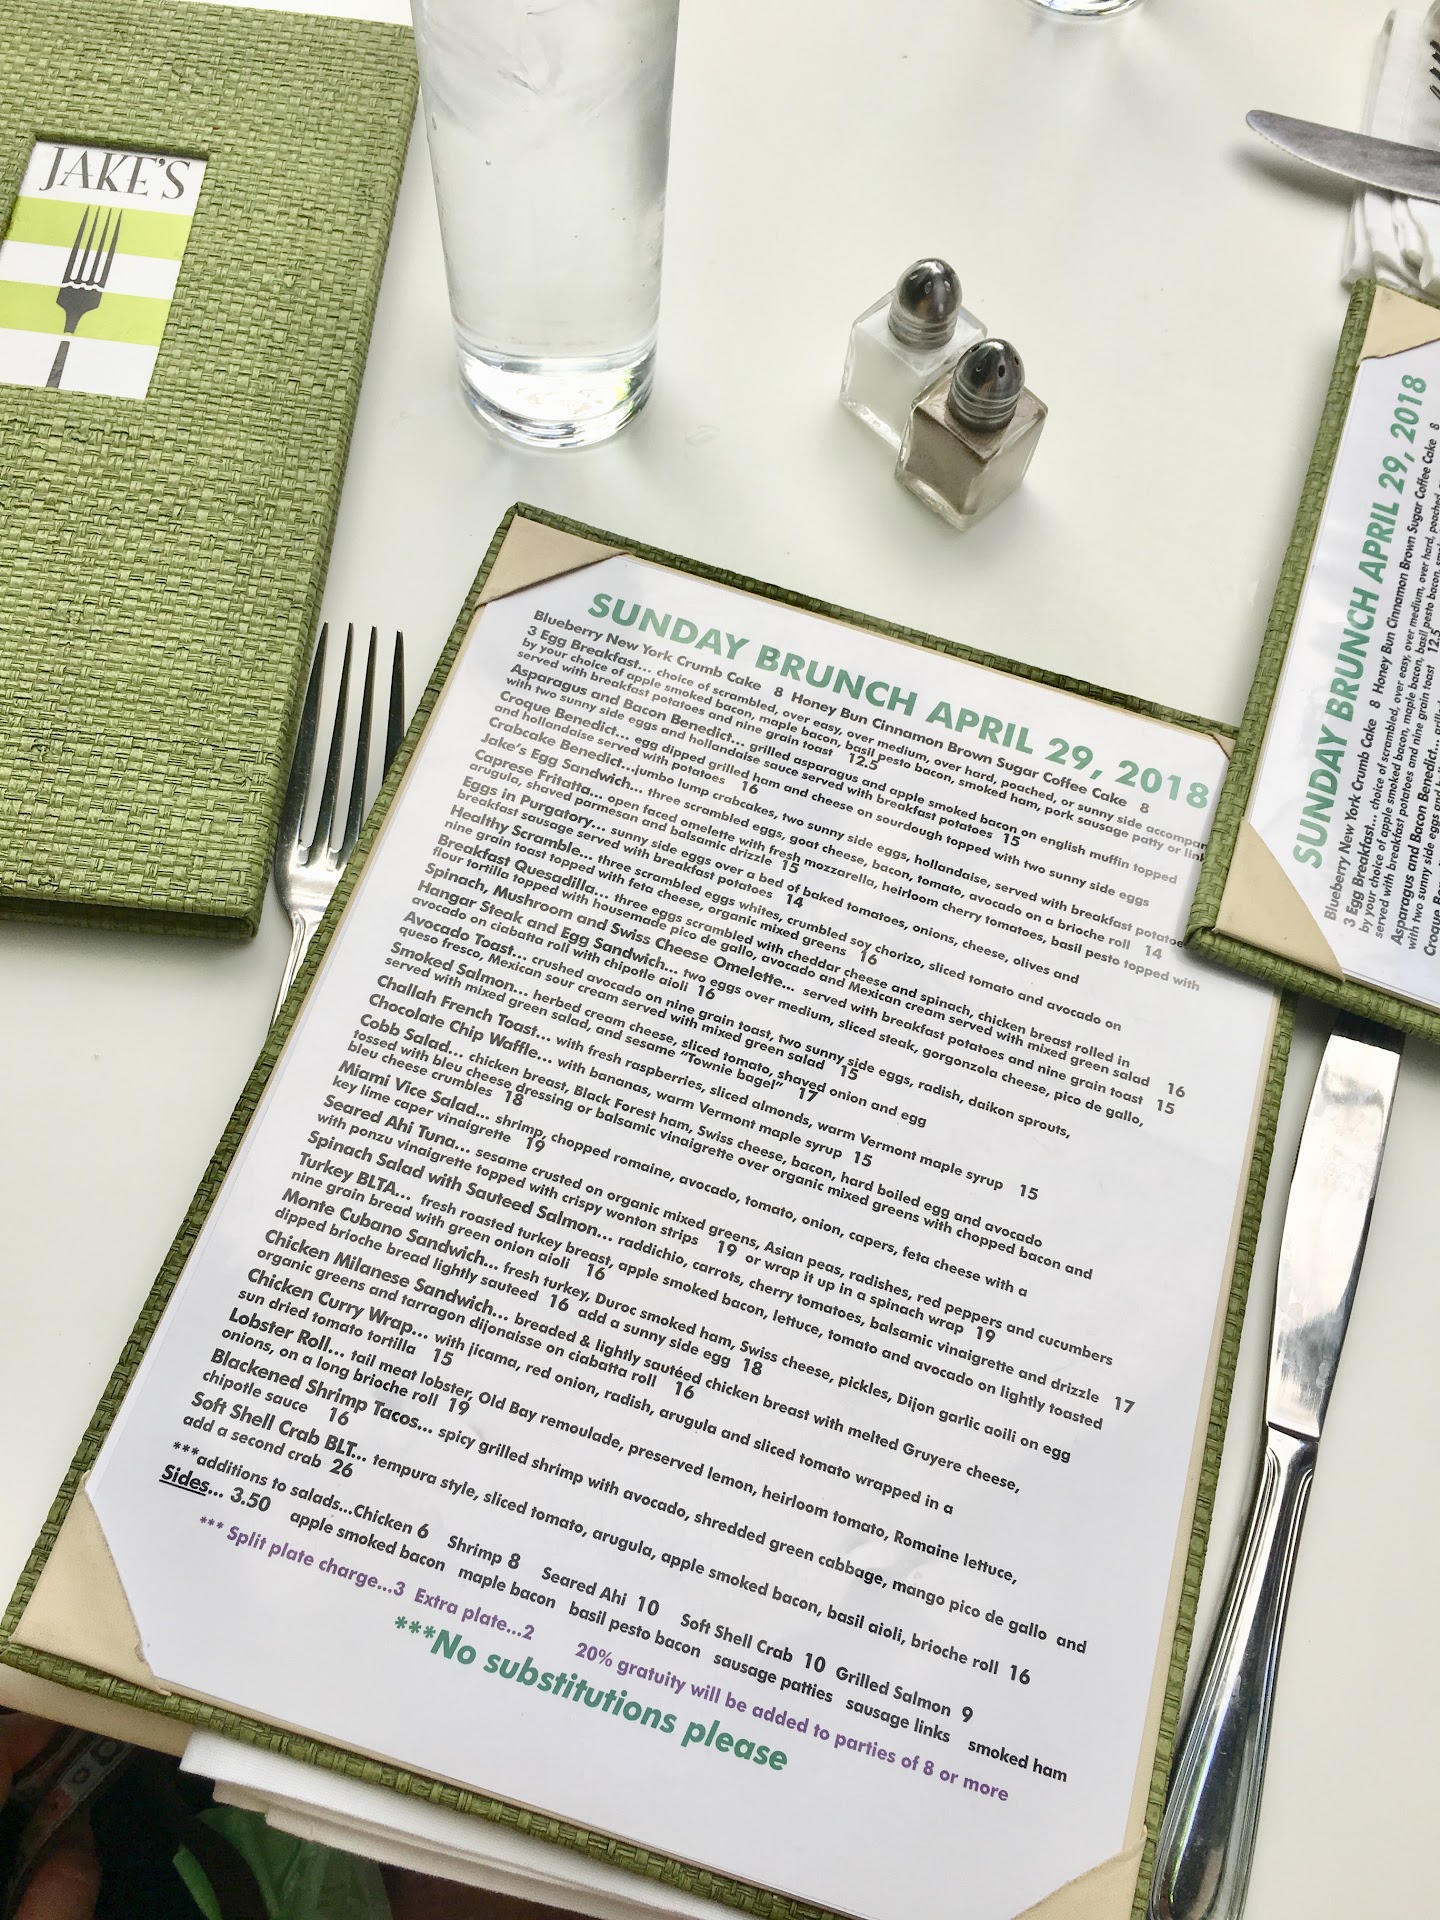 JAKE'S
SUNDAY BRUNCH APRIL 29, 2018
Blueberry New York Crumb Cake 8 Honey Bun Cinnamon Brown Sugar Coffee Cake 8
3 Egg Breakfast... choice of scrambled, over easy, over medium, over hard, poached, or sunny side accompan
by your choice of apple smoked bacon, maple bacon, basil pesto bacon, smoked ham, pork sausage patty or link
served with breakfast potatoes and nine grain toast 12.5
Asparagus and Bacon Benedict... grilled asparagus and apple smoked bacon on english muffin topped
with two sunny side eggs and hollandaise sauce served with breakfast potatoes 15
Croque Benedict... egg dipped grilled ham and cheese on sourdough topped with two sunny side eggs
and hollandaise served with potatoes 16
Crabcake Benedict...jumbo lump crabcakes, two sunny side eggs, hollandaise, served with breakfast potatoe
Jake's Egg Sandwich... three scrambled eggs, goat cheese, bacon, tomato, avocado on a brioche roll 14
Caprese Fritatta... open faced omelette with fresh mozzarella, heirloom cherry tomatoes, basil pesto topped with
arugula, shaved parmesan and balsamic drizzle 15
Eggs in Purgatory... sunny side eggs over a bed of baked tomatoes, onions, cheese, olives and
breakfast sausage served with breakfast potatoes 14
Healthy Scramble... three scrambled eggs whites, crumbled soy chorizo, sliced tomato and avocado on
nine grain toast topped with feta cheese, organic mixed greens 16
Breakfast Quesadilla... three eggs scrambled with cheddar cheese and spinach, chicken breast rolled in
flour tortilla topped with housemade pico de gallo, avocado and Mexican cream served with mixed green salad 16
Spinach, Mushroom and Swiss Cheese Omelette... served with breakfast potatoes and nine grain toast 15
Hangar Steak and Egg Sandwich... two eggs over medium, sliced steak, gorgonzola cheese, pico de gallo,
avocado on ciabatta roll with chipotle aioli 16
Avocado Toast... crushed avocado on nine grain toast, two sunny side eggs, radish, daikon sprouts,
queso fresco, Mexican sour cream served with mixed green salad 15
Smoked Salmon... herbed cream cheese, sliced tomato, shaved onion and egg
served with mixed green salad, and sesame "Townie bagel" 17
Challah French Toast... with fresh raspberries, sliced almonds, warm Vermont maple syrup 15
Chocolate Chip Waffle... with bananas, warm Vermont maple syrup 15
Cobb Salad... chicken breast, Black Forest ham, Swiss cheese, bacon, hard boiled egg and avocado
tossed with bleu cheese dressing or balsamic vinaigrette over organic mixed greens with chopped bacon and
bleu cheese crumbles 18
Miami Vice Salad... shrimp, chopped romaine, avocado, tomato, onion, capers, feta cheese with a
key lime caper vinaigrette 19
Seared Ahi Tuna... sesame crusted on organic mixed greens, Asian peas, radishes, red peppers and cucumbers
with ponzu vinaigrette topped with crispy wonton strips 19 or wrap it up in a spinach wrap 19
Spinach Salad with Sauteed Salmon... raddichio, carrots, cherry tomatoes, balsamic vinaigrette and drizzle 17
Turkey BLTA... fresh roasted turkey breast, apple smoked bacon, lettuce, tomato and avocado on lightly toasted
nine grain bread with green onion aioli 16
Monte Cubano Sandwich... fresh turkey, Duroc smoked ham, Swiss cheese, pickles, Dijon garlic aoili on egg
dipped brioche bread lightly sauteed 16 add a sunny side egg 18
Chicken Milanese Sandwich... breaded & lightly sautéed chicken breast with melted Gruyere cheese,
organic greens and tarragon dijonaisse on ciabatta roll 16
Chicken Curry Wrap... with jicama, red onion, radish, arugula and sliced tomato wrapped in a
sun dried tomato tortilla 15
Lobster Roll... tail meat lobster, Old Bay remoulade, preserved lemon, heirloom tomato, Romaine lettuce,
onions, on a long brioche roll 19
Blackened Shrimp Tacos... spicy grilled shrimp with avocado, shredded green cabbage, mango pico de gallo and
chipotle sauce 16
Soft Shell Crab BLT... tempura style, sliced tomato, arugula, apple smoked bacon, basil aioli, brioche roll 16
add a second crab 26
***additions to salads...Chicken 6 Shrimp 8 Seared Ahi 10 Soft Shell Crab 10 Grilled Salmon 9
Sides... 3.50 apple smoked bacon maple bacon basil pesto bacon sausage patties sausage links smoked ham
*** Split plate charge...3 Extra plate...2 20% gratuity will be added to parties of 8 or more
***No substitutions please
SUNDAY BRUNCH APRIL 29, 2018
Blueberry New York Crumb Cake 8 Honey Bun Cinnamon Brown Sugar Coffee Cake 8
3 Egg Breakfast... choice of scrambled, over easy, over medium, over hard, poached,
by your choice of apple smoked bacon, maple bacon, basil pesto bacon,
served with breakfast potatoes and nine grain toast 12.5
Asparagus and Bacon Benedict... grilled
with two sunny side eggs and
Croque Ben